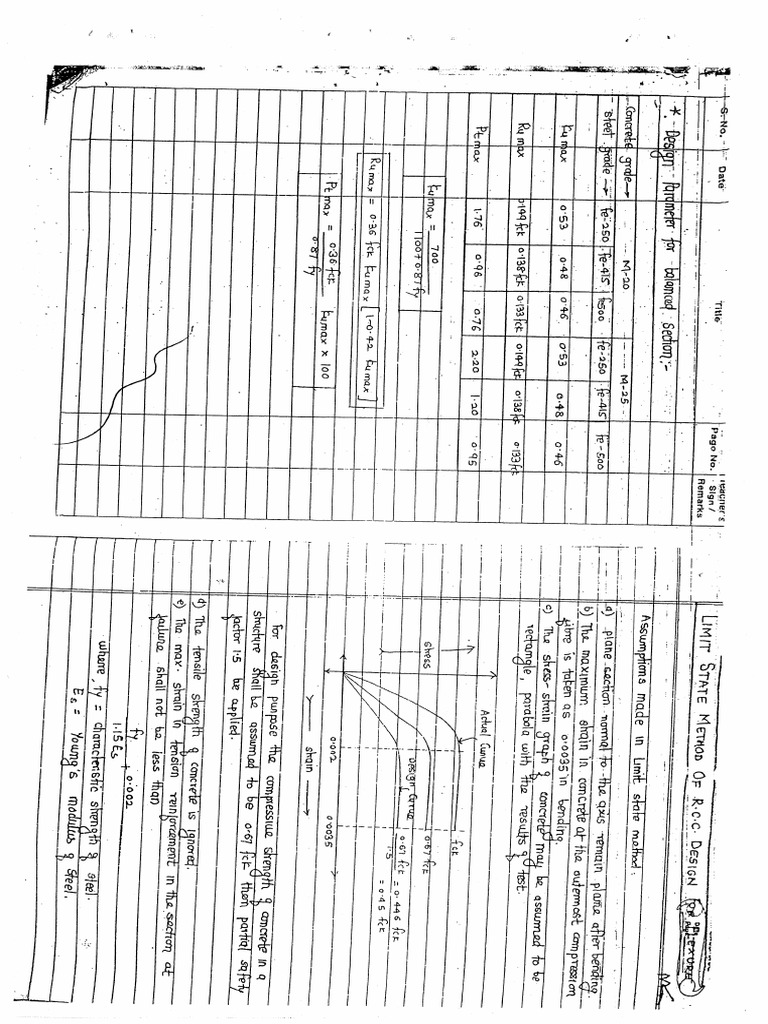 LIMIT STATE METHOD OF R.C.C. DESIGN
Assumptions made in Limit state method.
a) plane section normal to the axis remain plane after bending.
b) The maximum strain in concrete at the outermost compression
fibre is taken as 0.0035 in bending.
c) The stress-strain graph of concrete may be assumed to be
rectangle, parabola with the results of test.
Actual Curve
stress
fck
0.67 fck
Design Curve
0.67 fck / 1.5 = 0.446 fck
= 0.45 fck
0.002
0.0035
strain
for design purpose the compressive strength of concrete in a
structure shall be assumed to be 0.67 fck then partial safety
factor 1.5 be applied.
d) The tensile strength of concrete is ignored.
e) The max. strain in tension reinforcement in the section at
failure shall not be less than
fy / 1.15 Es + 0.002
where, fy = characteristic strength of steel.
Es = Young's modulus of steel.
S. No. Date Title Page No. Teacher's Sign / Remarks
*. Design Parameter for balanced Section:-
Concrete grade → M-20 M-25
Steel grade → fe-250 fe-415 fe500 fe-250 fe-415 fe-500
Ku max 0.53 0.48 0.46 0.53 0.48 0.46
Ru max 0.149 fck 0.138 fck 0.133 fck 0.149 fck 0.138 fck 0.133 fck
Pt max 1.76 0.96 0.76 2.20 1.20 0.95
Ku max = 700 / 1100 + 0.87 fy
Ru max = 0.36 fck Ku max [1-0.42 Ku max]
Pt max = 0.36 fck / 0.87 fy Ku max × 100